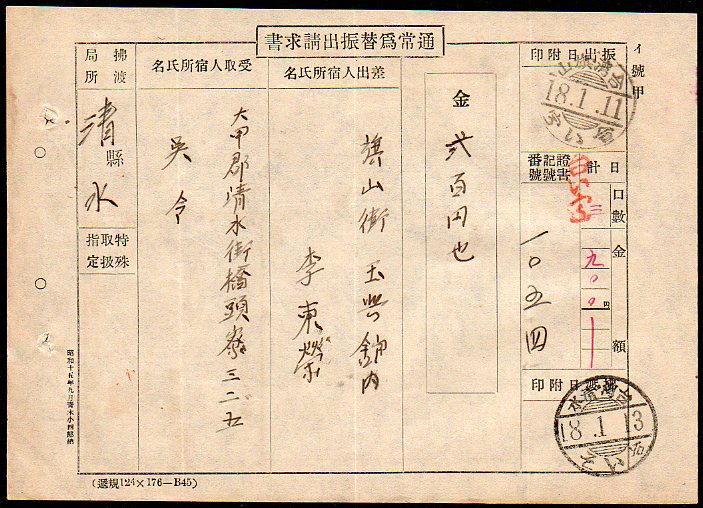 通常爲替振出請求書
イ號甲
振出日附印
台湾旗山
18.1.11
證書
記號
番號
一〇五四
日計
口數
金額
九〇〇
円
拂渡日附印
台湾清水
18.1.13
金 弍百円也
差出人宿所氏名
旗山街
李東燦
受取人宿所氏名
大甲郡清水街橋頭寮三二五
吳令
拂渡局所
清水
縣
特殊取扱指定
(遞規124×176—B45)